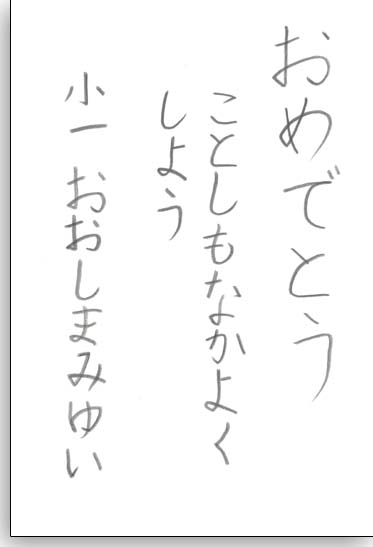 おめでとう
ことしもなかよく
しよう
小一 おおしまみゆい